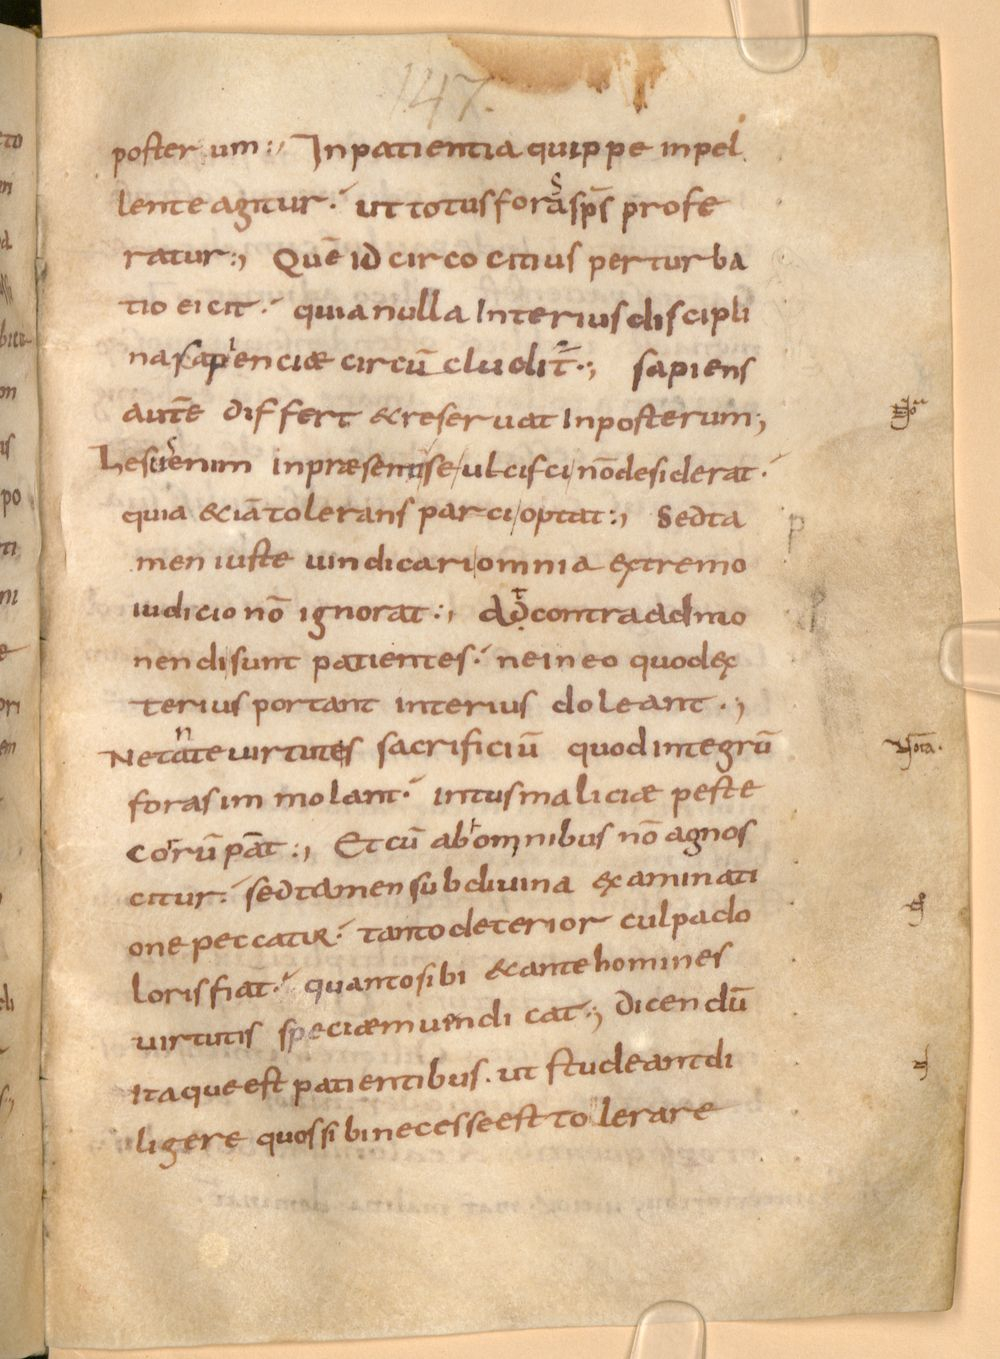 147.
posterum:, Inpatientia quippe inpel
lente agitur. ut totus foras sps̄ profe
ratur:, Quē idcirco citius perturba
tio eicit. quia nulla Interius discipli
na sapienciæ circū cludit̄:, sapiens
autē differt & reseruat Inposterum;
Lesus enim inpræsenti se ulcisci nō desiderat.
quia &iā tolerans parci optat:, Sed ta
men iuste uindicari omnia extremo
iudicio nō ignorat:, At contra admo
nendi sunt patientes. ne in eo quod ex
terius portant interius doleant.,
Ne tantæ uirtutis sacrificiū quod integrū
foras immolant. intus maliciæ peste
corrūpāt:, Et cū ab omnibus nō agnos
citur. sed tamen sub diuina examinati
one peccatur. tanto deterior culpa do
loris fiat. quanto sibi & ante homines
uirtutis speciæm uendicat:, Dicendū
Itaque est patientibus. ut studeant di
ligere quos sibi necesse est tolerare